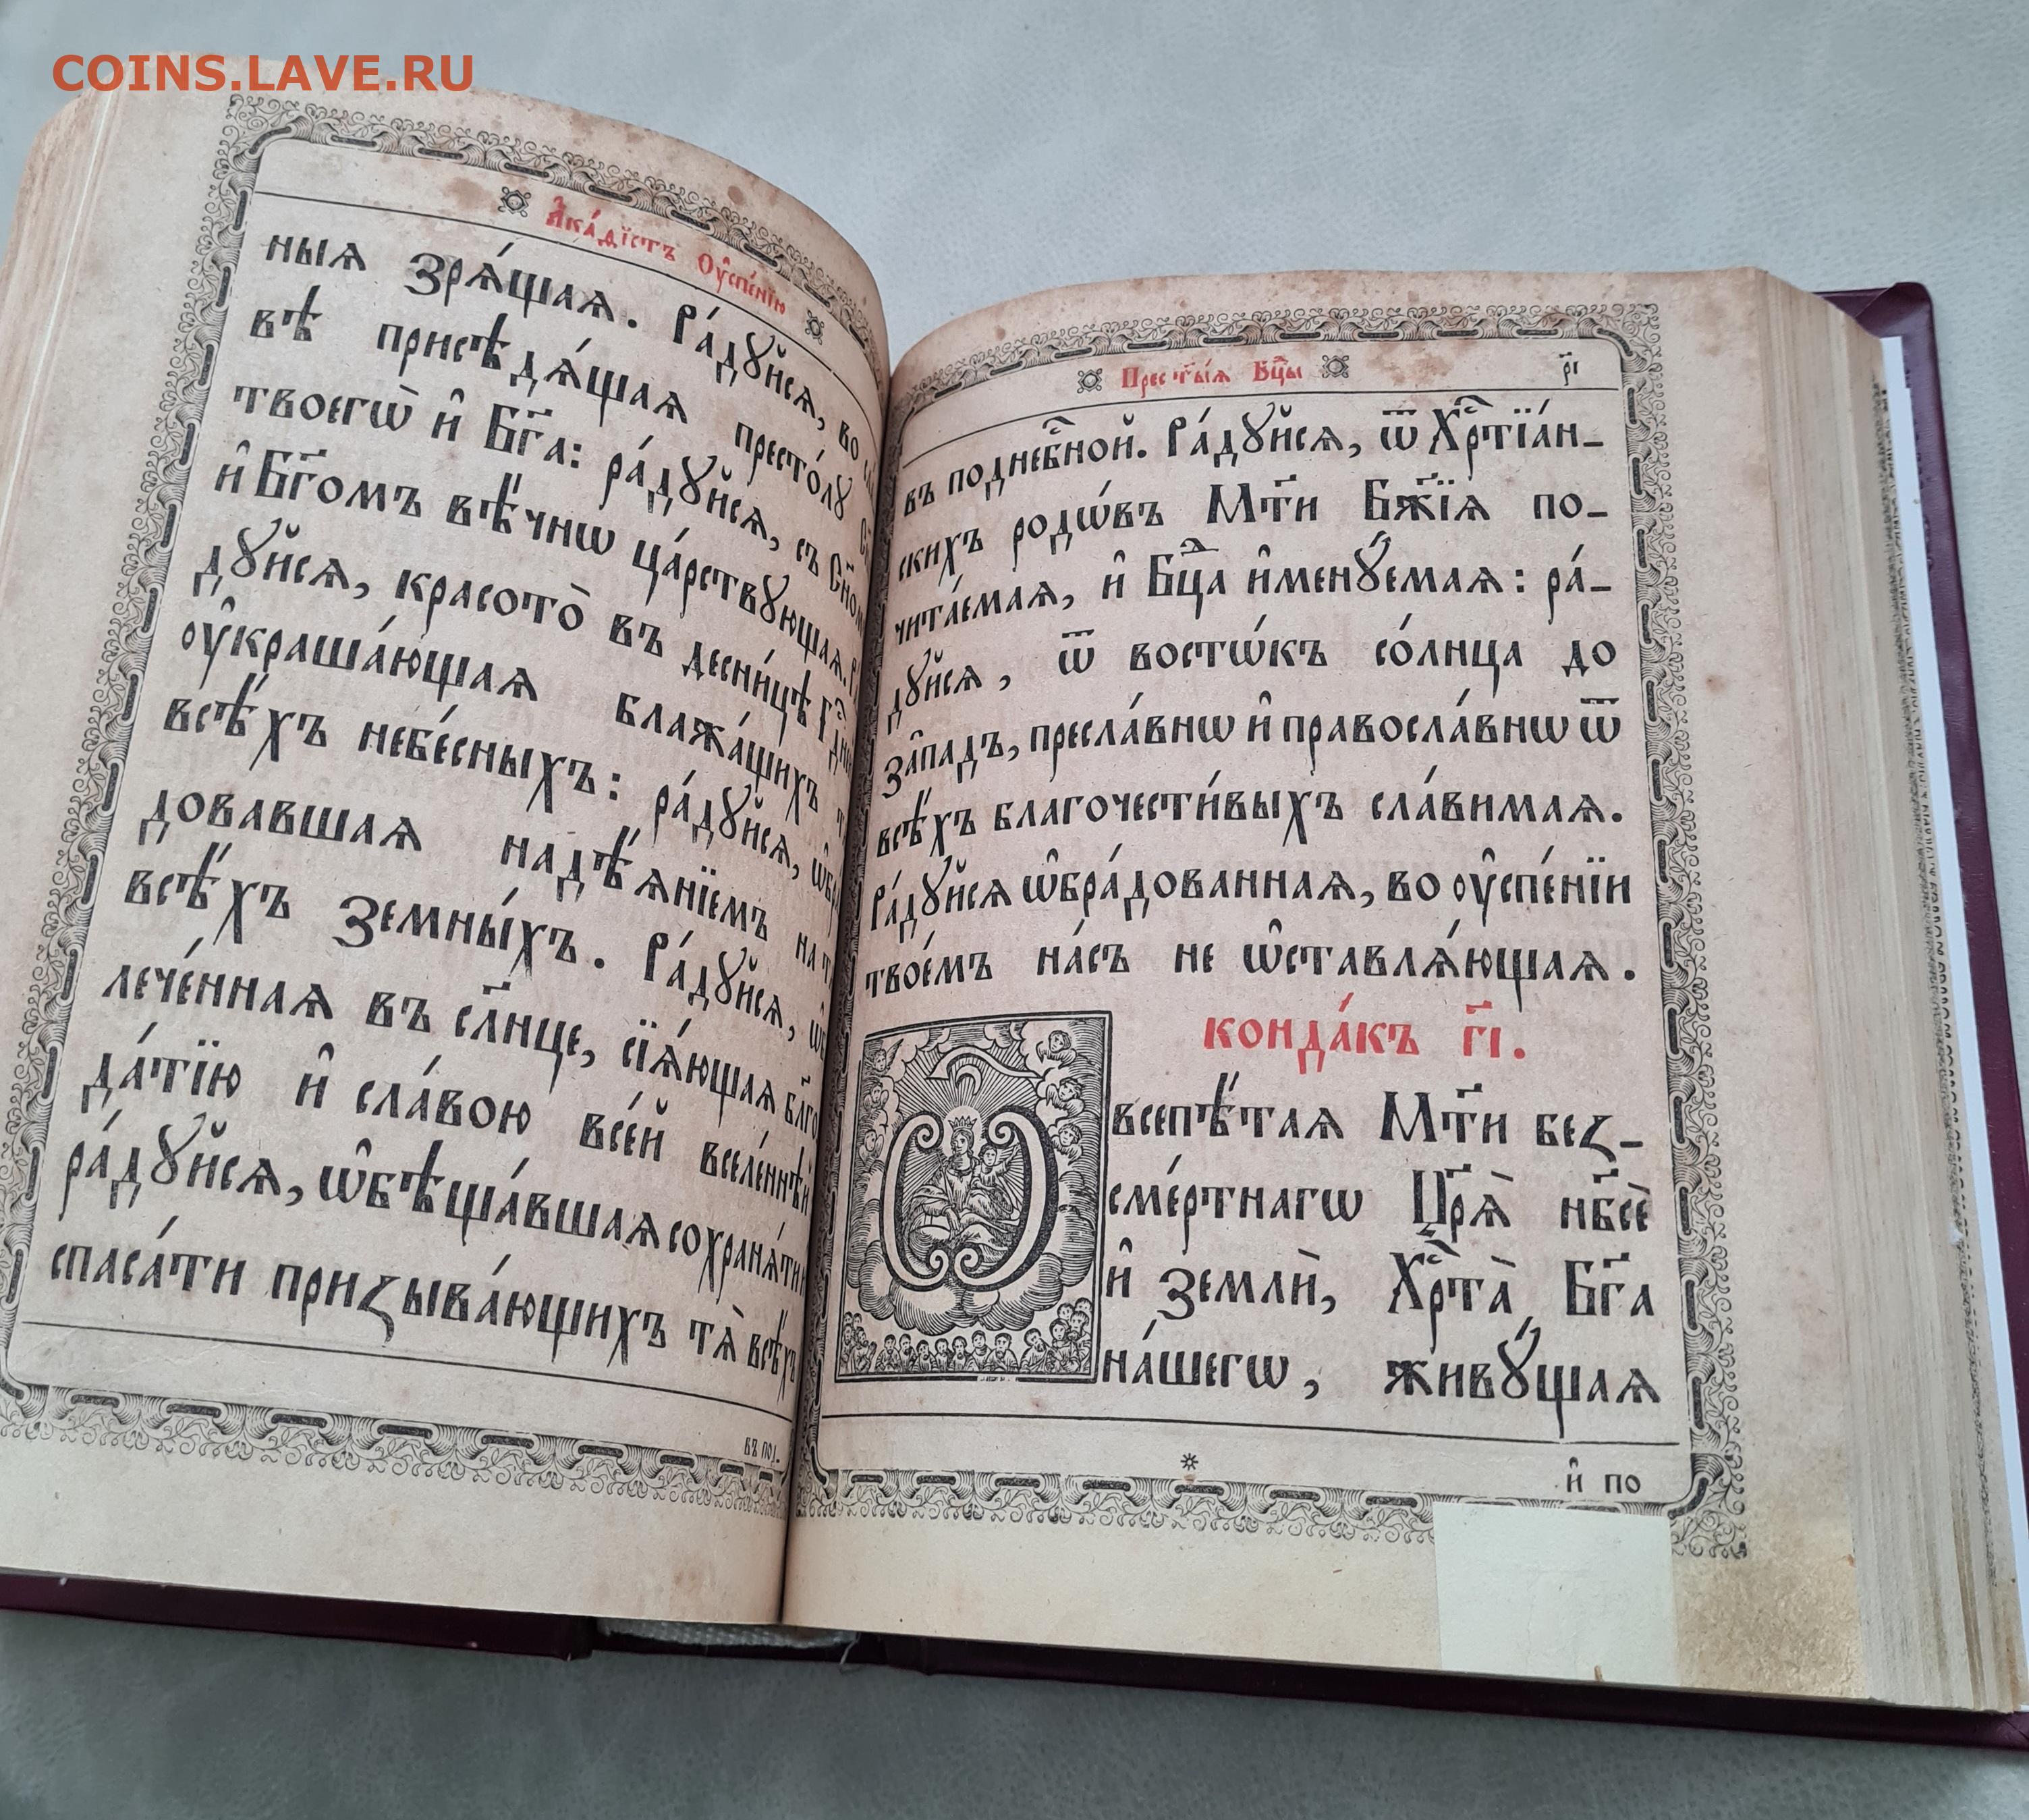 COINS.LAVE.RU
А҆ка́ѳїстъ Оу҆спе́нїю
ныѧ зрѧ́щаѧ. Ра́дꙋйсѧ, во
вѣ присѣдѧ́щаѧ престо́лꙋ
твоегѡ̀ и҆ Бг҃а: ра́дꙋйсѧ, съ Сн҃ом
и҆ Бг҃омъ вѣ́чнѡ ца́рствꙋющаѧ.
дꙋйсѧ, красото̀ въ десни́цѣ
оу҆краша́ющаѧ блажа́щихъ
всѣ́хъ небе́сныхъ: ра́дꙋйсѧ,
довавшаѧ надѣ́ѧнїемъ на
всѣ́хъ земны́хъ. Ра́дꙋйсѧ,
лече́ннаѧ въ сл҃нце, сїѧ́ющаѧ бл҃го
да́тїю и҆ сла́вою все́й вселе́ннѣй
ра́дꙋйсѧ, ѡ҆бѣща́вшаѧ сохранѧ́ти
спаса́ти призыва́ющихъ тѧ̀ всѣ́хъ
въ по
Прест҃ы́ѧ Бц҃ы
р҃і
въ поднеб҇ной. Ра́дꙋйсѧ, ѿ Хрⷭ҇тїа́н-
скихъ родѡ́въ Мт҃и Бж҃їѧ по-
чита́емаѧ, и҆ Бцⷣа и҆менꙋ́емаѧ: ра́-
дꙋйсѧ, ѿ востѡ́къ со́лнца до
за̑падъ, пресла́внѡ и҆ правосла́внѡ ѿ
всѣ́хъ благочести́выхъ сла́вимаѧ.
Ра́дꙋйсѧ ѡ҆бра́дованнаѧ, во оу҆спе́нїи
твое́мъ на́съ не ѡ҆ставлѧ́ющаѧ.
конда́къ г҃і.
Ѽ всепѣ́таѧ Мт҃и без-
сме́ртнагѡ Цр҃ѧ̀ нб҃сѐ
и҆ землѝ, Хрⷭ҇та̀ Бг҃а
на́шегѡ, живꙋ́щаѧ
и҆ по